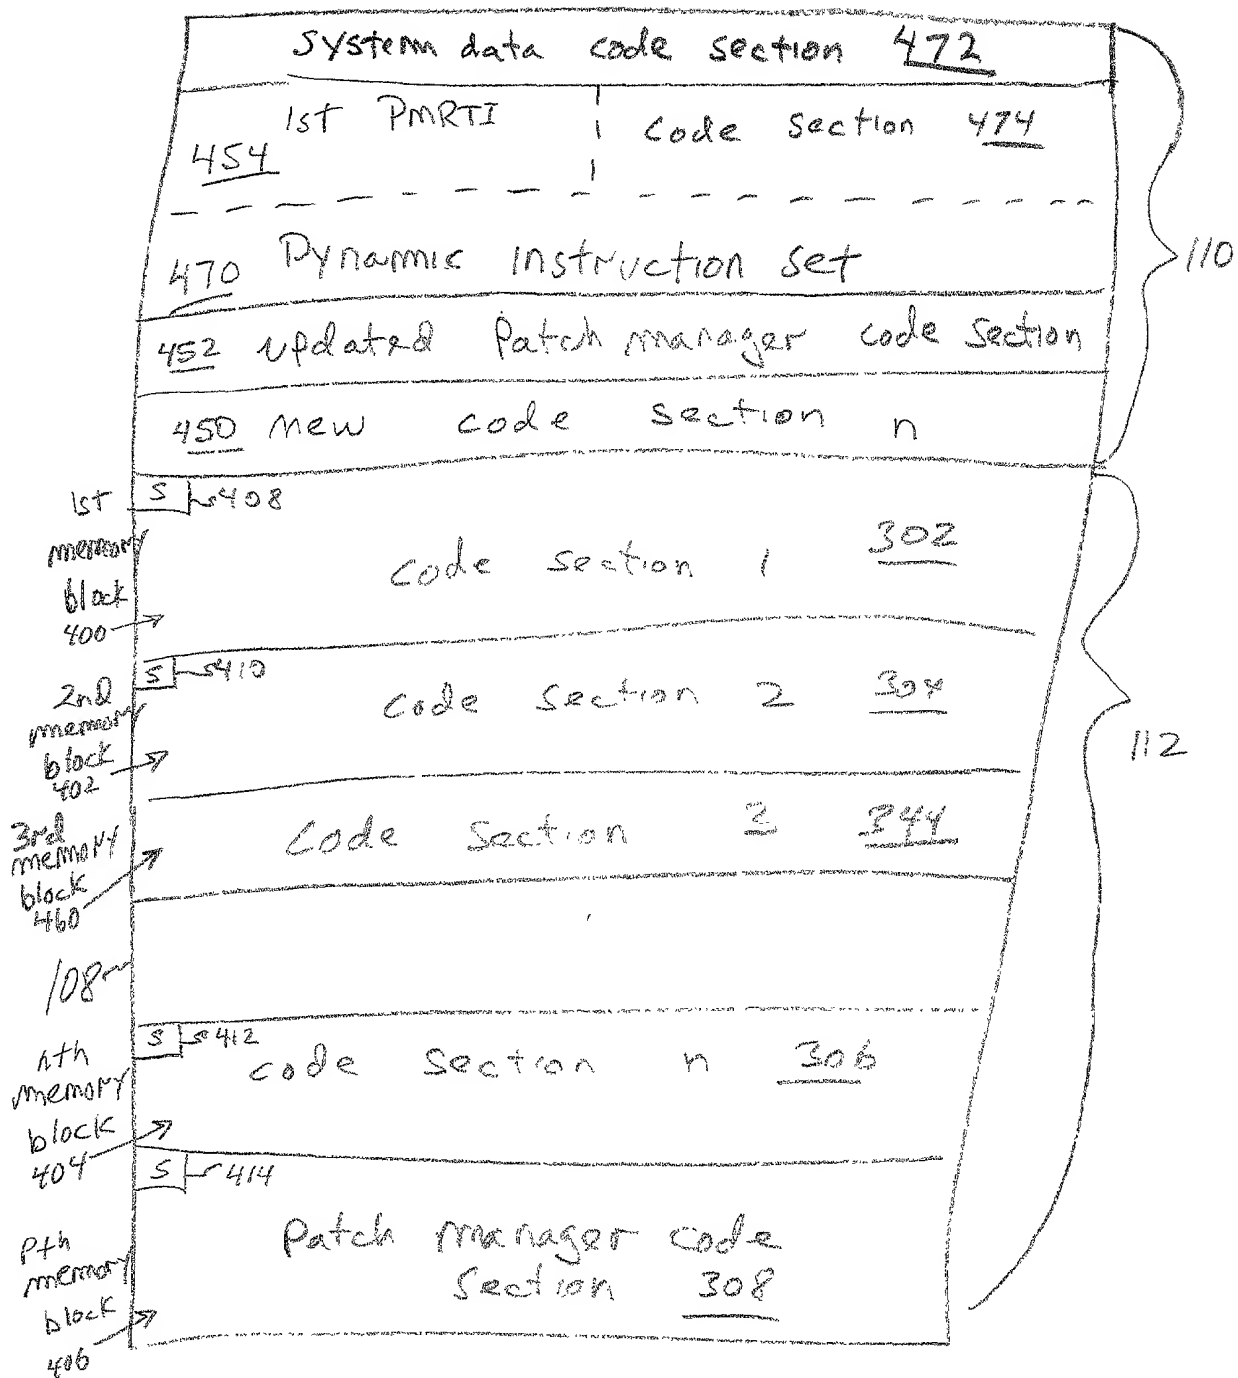 System data code section 472
1st PMRTI
code section 474
454
470 Dynamic instruction set
110
452 updated Patch manager code section
450 new code section n
S 408
1st
memory
block
400
code section 1 302
S 410
2nd
memory
block
402
code section 2 304
112
3rd
memory
block
460
Code Section 3 344
108
S 412
nth
memory
block
404
code section n 306
S 414
Pth
memory
block
406
Patch manager code
Section 308